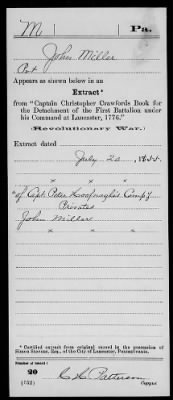 M | Pa.
John Miller
Pvt
Appears as shown below in an
Extract*
from "Captain Christopher Crawfords Book for
the Detachment of the First Battalion under
his Command at Lancaster, 1776."
(Revolutionary War.)
Extract dated July 22, 1855.
x x x
"of Capt. Peter Hoofnagle's Compy
Privates
John Miller
x x x
* Certified extract from original record in the possession of
Simon Stevens, Esq., of the City of Lancaster, Pennsylvania.
Number of record:
20
(752)
Patterson
Copyist.